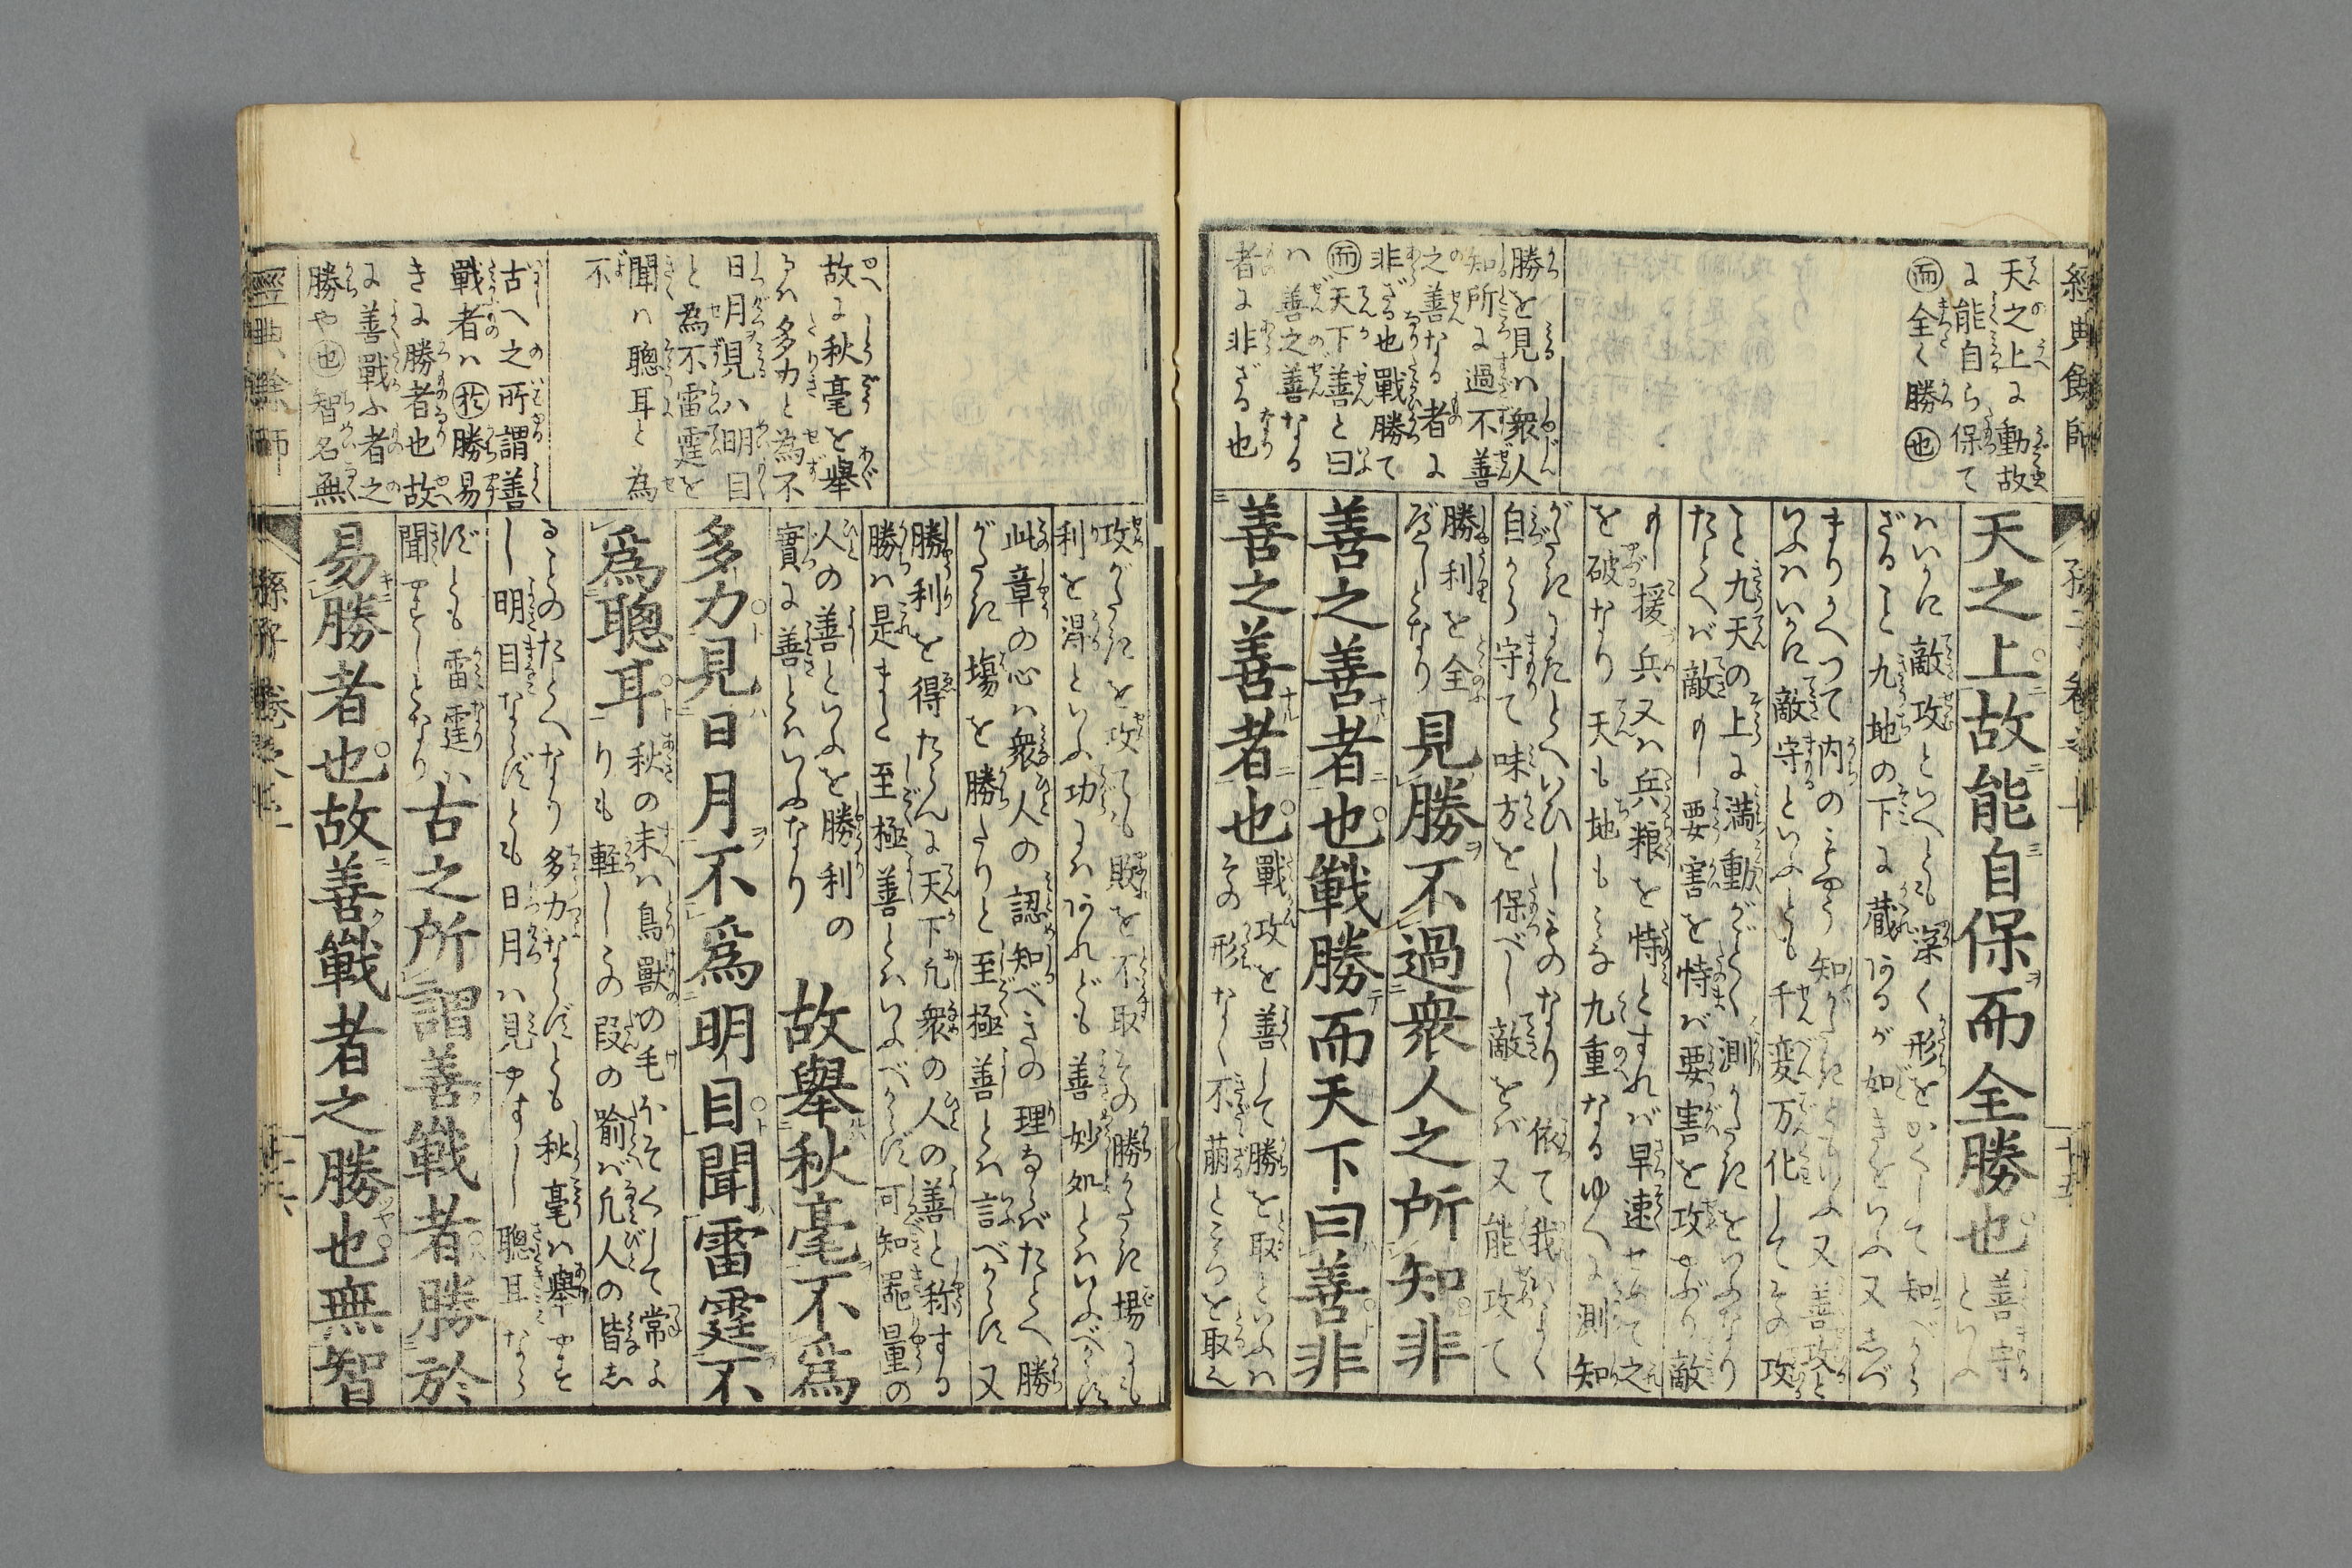 經典餘師
天之上に動故
に能自ら保て
而全く勝也
勝を見ハ衆人
知所に過不善
之善なる者に
非ざる也戰勝て
而天下善と曰
ハ善之善なる
者に非ざる也
天之上故能自保而全勝也
善守といふ
ハいかに敵攻といへども深く形をかくして知べから
ざること九地の下に蔵れあるが如きをいふ又善攻と
こと九天の上に満動がごとく測がたきをいふなり
たとへバ敵の要害を恃バ要害を攻やぶり敵
の援兵又ハ兵粮を恃とすれバ早速せめて之
を破なり天も地もみな九重なるゆへに測知
がたきにたとへいひしものなり依て我よく
自から守て味方を保べし敵をバ又能攻て
勝利を全
べしとなり
見勝不過衆人之所知非
善之善者也戰勝而天下曰善非
善之善者也
戰攻を善して勝を取といふハ
その形なく不萠ところを取え
故に秋毫を舉
るハ多力と為不
日月見ハ明目
と為不雷霆を
聞ハ聰耳と為
不
古へ之所謂善
戰者ハ於勝易
きに勝者也故
に善戰ふ者之
勝や也智名無
攻がたきを攻ても敗を不取その勝がたき場にも
利を得といふ功にハあれども善妙処とハいふべからず
此章の心ハ衆人の認知べきの理ならバたとへ勝
がたき塲を勝たりと至極善とハ言べからず又
勝利を得たらんに天下凡衆の人の善と称する
勝ハ是また至極善とハいふべからず可知器量の
人の善といふを勝利の
實に善とハいふなり
故舉秋毫不爲
多力見日月不爲明目聞雷霆不
爲聰耳
秋の末ハ鳥獸の毛ほそくして常よ
りも軽しその段の喩バ凡人の皆し
ることのたとへなり多力ならずとも秋毫ハ舉やす
し明目ならずとも日月ハ見やすし聰耳なら
ずとも雷霆ハ
聞やすしとなり
古之所謂善戰者勝於
易勝者也故善戰者之勝也無智
經典餘師
孫子